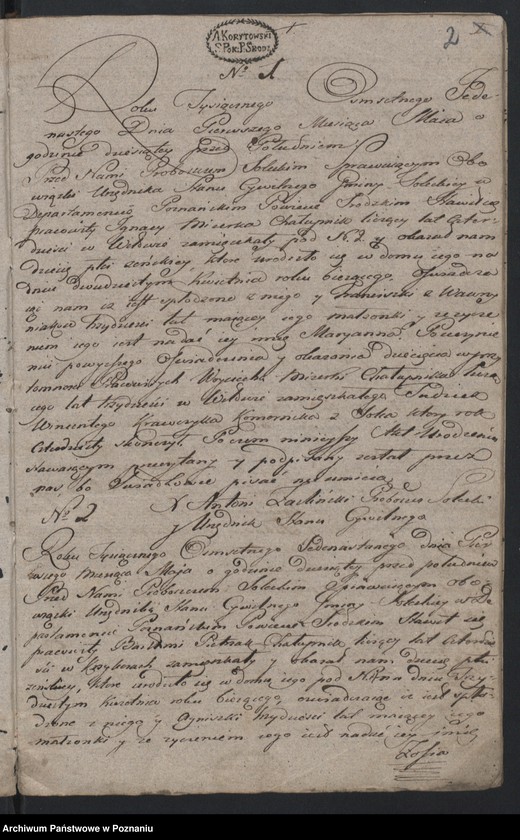 A. KORYTOWSKI
S. POK: P. ŚROD:
2
Nº 1
Roku Tysiącznego Osmsetnego Jede-
nastego Dnia Pierwszego Miesiąca Maia o
godzinie dziesiątey przed Południem
Przed Nami Proboszczem Soleckim sprawuiącym obo-
wiązki Urzędnika Stanu Cywilnego Gminy Soleckiey w
Departamencie Poznańskim Powiecie Średzkim Stawił się
pracowity Ignacy Chałupnik liczący lat czter-
dzieści w zamieszkały pod N. 2 y okazał nam
dziecię płci żeńskiey, które urodziło się w domu iego na
dniu dwudziestym Kwietnia roku bieżącego. Oświadcza-
iąc nam iż iest spłodzone z niego y Franciszki z
trzydzieści lat maiącey iego małżonki y że życze-
niem iego iest nadać iey imię Maryanna. Po uczynie-
niu powyższego Oświadczenia y okazaniu dziecięcia w przy-
tomności Pracowitych Woyciecha Chałupnika
cego lat trzydzieści w zamieszkałego Tudzież
Wincentego Krawczyka Komornika z który rok
skończył. Poczem ninieyszy Akt Urodzenia
Stawaiącym przeczytany y podpisany został przez
nas bo Świadkowie pisać nie umieią
X Antoni Proboszcz Solecki
y Urzędnik Stanu Cywilnego
Nº 2
Roku Tysiącznego Osmsetnego Jedenastego dnia Pier-
wszego Miesiąca Maja o godzinie dziesiątey przed południem
Przed Nami Proboszczem Soleckim sprawuiącym obo-
wiązki Urzędnika Stanu Cywilnego Gminy Soleckiey w De-
partamencie Poznańskim Powiecie Średzkim Stawił się
pracowity Pietrzak Chałupnik liczący lat czterdzie-
ści w zamieszkały y okazał nam dziecię płci
żeńskiey, które urodziło się w domu iego pod N. na dniu Trzy-
dziestym Kwietnia roku bieżącego oświadczaiąc iż iest spło-
dzone z niego y Agnieszki trzydzieści lat maiącey iego
małżonki y że życzeniem iego iest nadać iey imię
Zofia
Archiwum Państwowe w Poznaniu
szukajwarchiwach.gov.pl